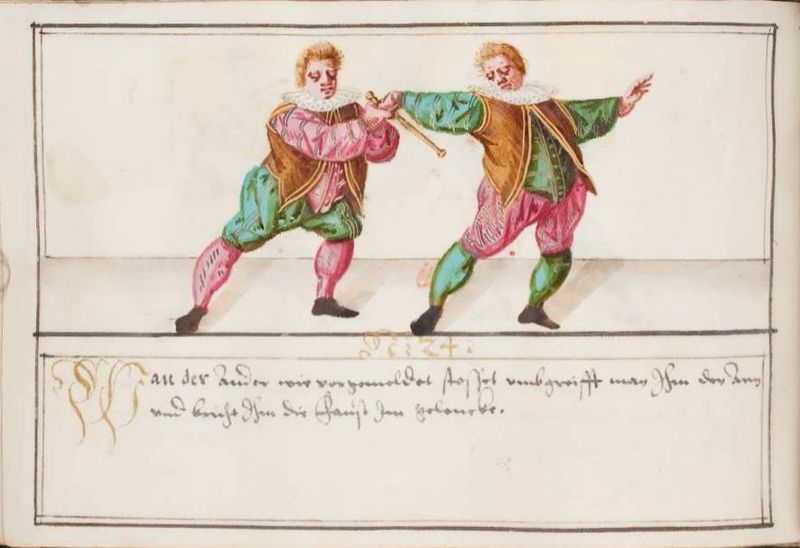 No: 24.
Wan der Ander wie vorgemeldet stosset vmbgreifft man Ihm den Arm
vnd bricht Ihm die Faust im gelencke.